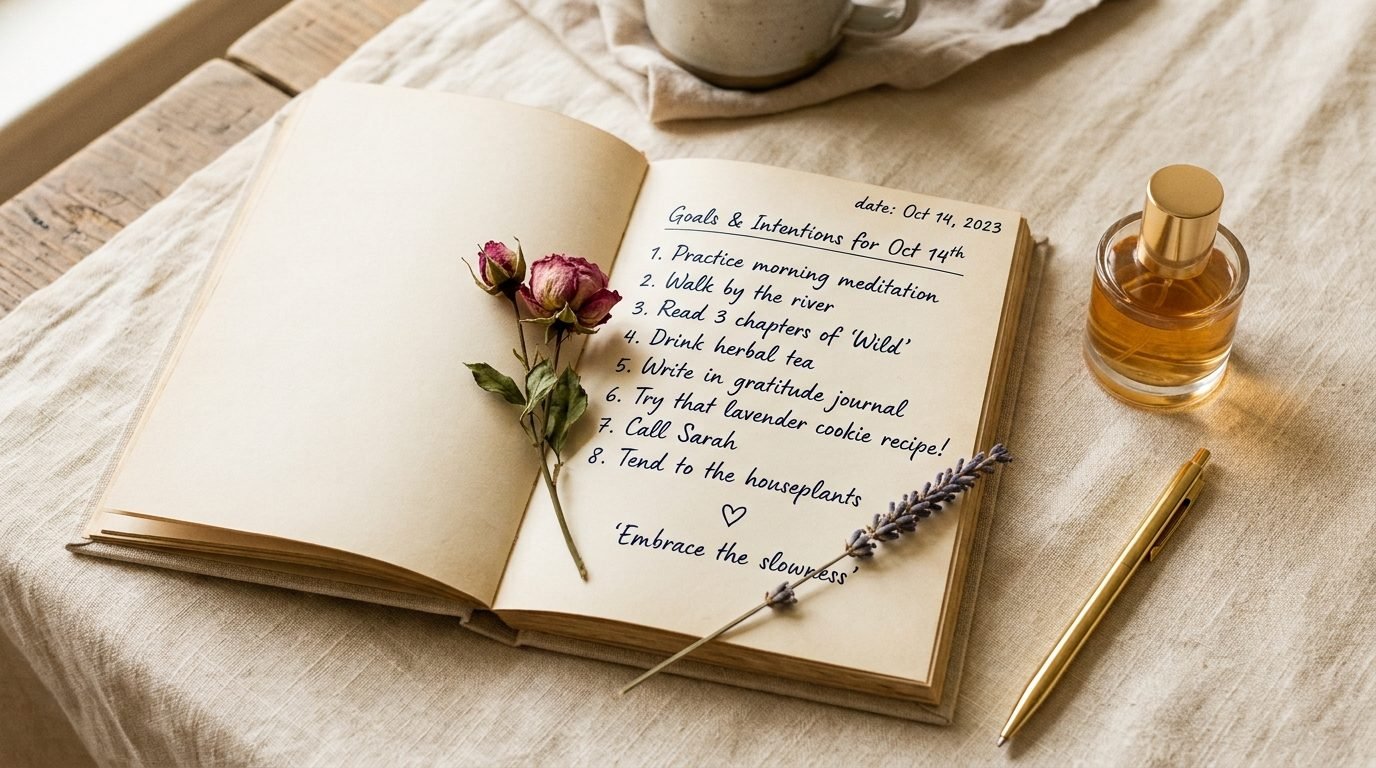 date: Oct 14, 2023
Goals & Intentions for Oct 14th
1. Practice morning meditation
2. Walk by the river
3. Read 3 chapters of 'Wild'
4. Drink herbal tea
5. Write in gratitude journal
6. Try that lavender cookie recipe!
7. Call Sarah
8. Tend to the houseplants
'Embrace the slowness'